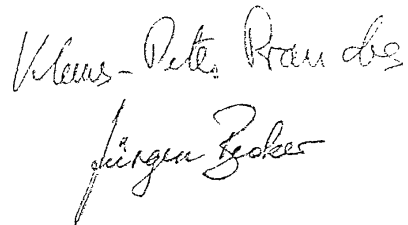 Klaus-Peter Brandes
Jürgen Becker